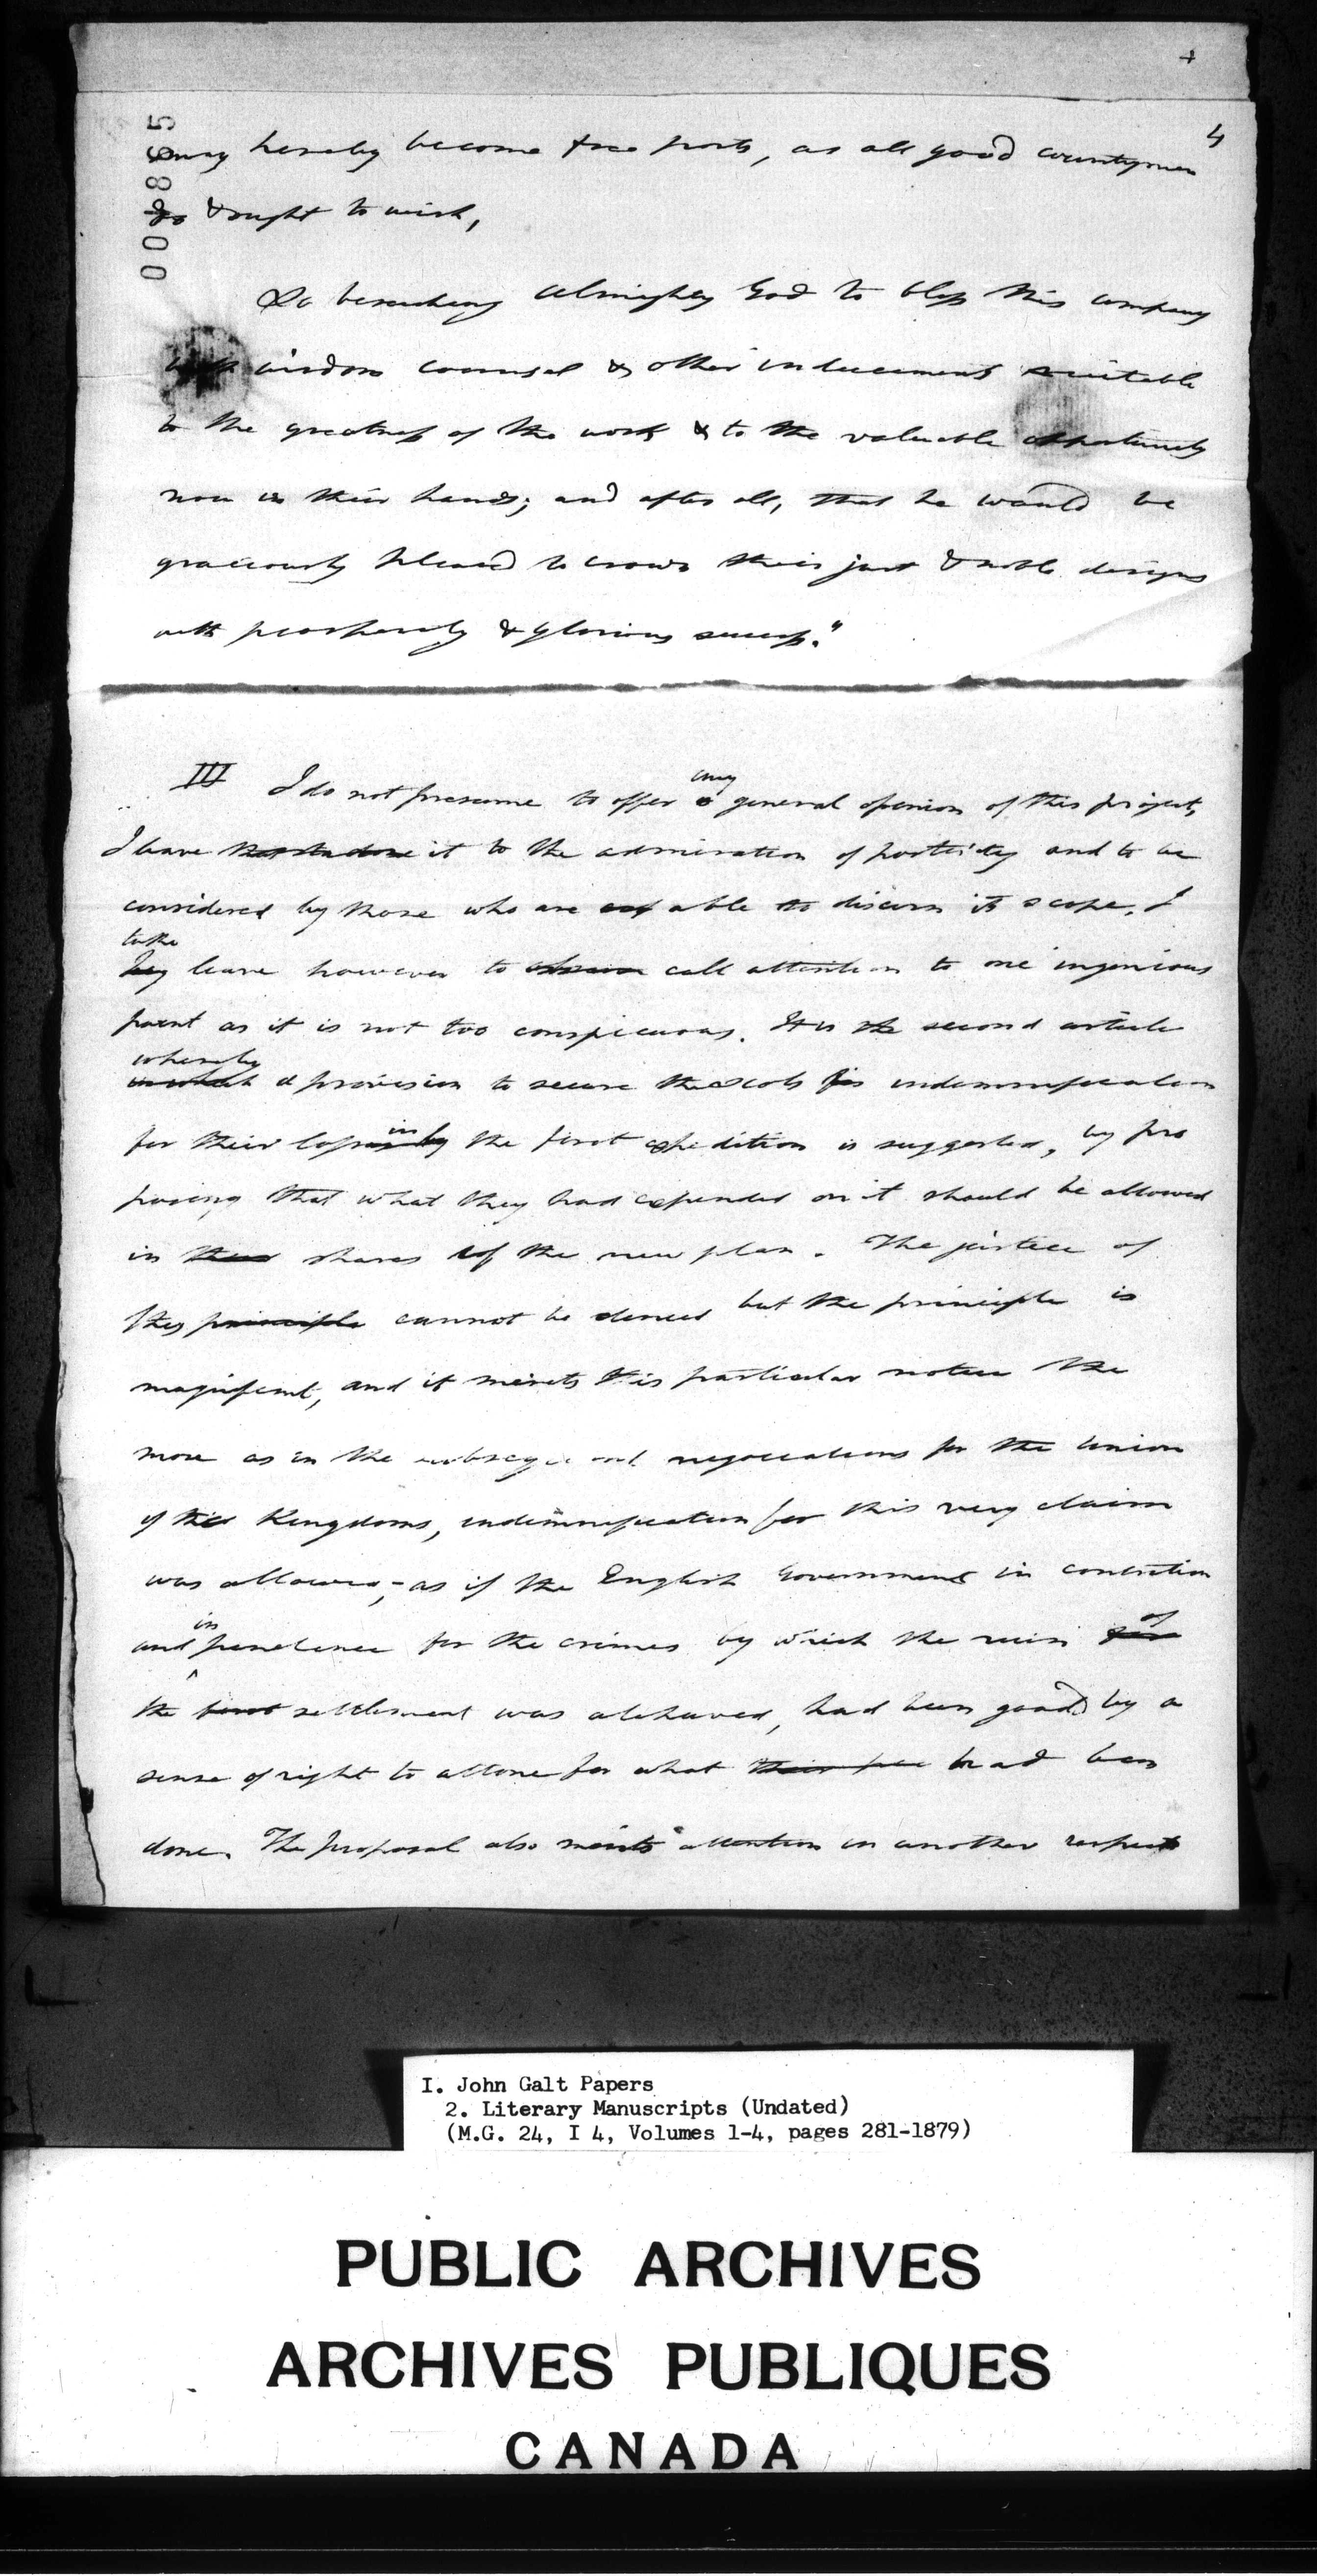 4
000865
may hereby become free ports, as all good countrymen
do & ought to wish,
So beseeching Almighty God to bless this company
with wisdom counsel & other inducements suitable
to the greatness of the work & to the valuable opportunity
now in their hands; and after all, that he would be
graciously pleased to crown their just & noble designs
with prosperity & glorious success."
III I do not presume to offer any general opinion of this project,
I leave it to the admiration of posterity and to be
considered by those who are able to discern its scope. I
take
beg leave however to call attention to one ingenious
point as it is not too conspicuous. It is the second article
whereby
in which a provision to secure the Scots indemnification
for their loss in by the first expedition is suggested, by pro
posing that what they had expended on it should be allowed
in shares of the new plan. The justice of
this principle cannot be denied but the principle is
magnificent, and it merits this particular notice the
more as in the subsequent negociations for the Union
of the Kingdoms, indemnification for this very claim
was allowed,- as if the English Government in contrition
and in penitence for the crimes by which the ruin of
the first settlement was atchieved, had been goaded by a
sense of right to attone for what had been
done. The proposal also merits attention in another respect
I. John Galt Papers
2. Literary Manuscripts (Undated)
(M.G. 24, I 4, Volumes 1-4, pages 281-1879)
PUBLIC ARCHIVES
ARCHIVES PUBLIQUES
CANADA